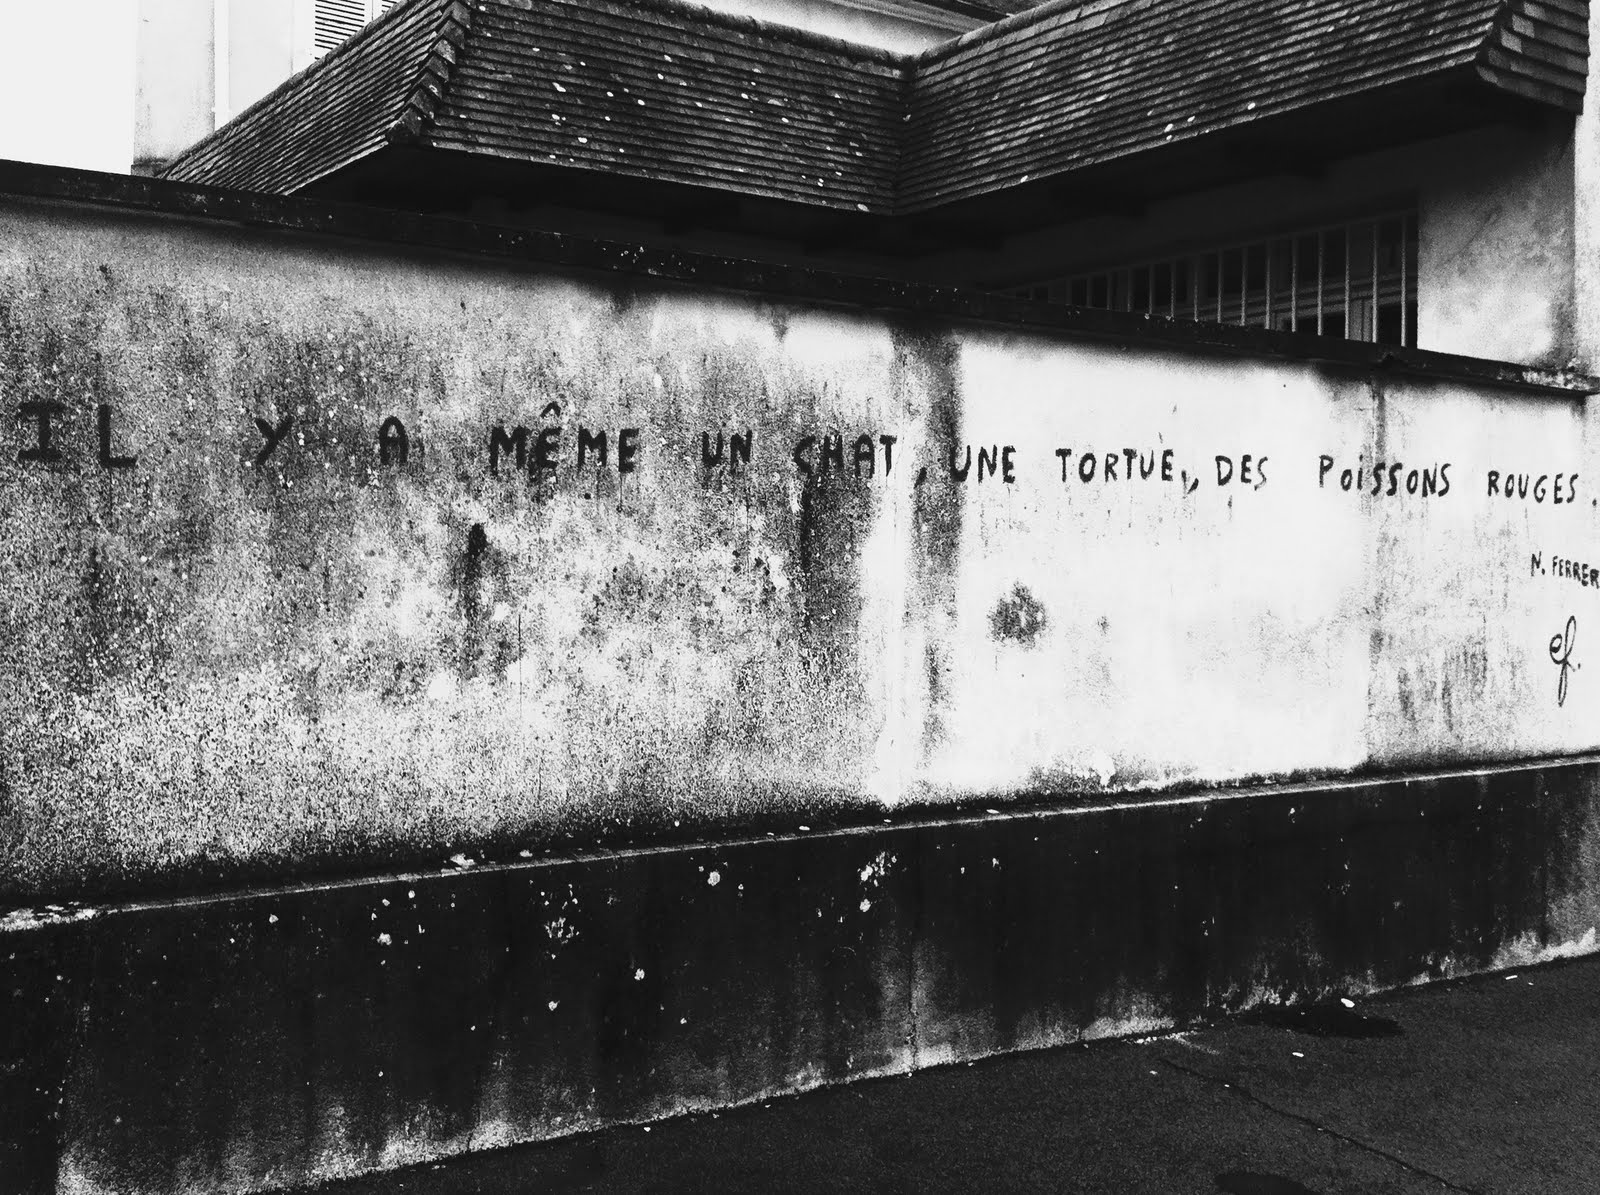 IL Y A MÊME UN CHAT, UNE TORTUE, DES POiSSONS ROUGES.
N. FERRER
ef.